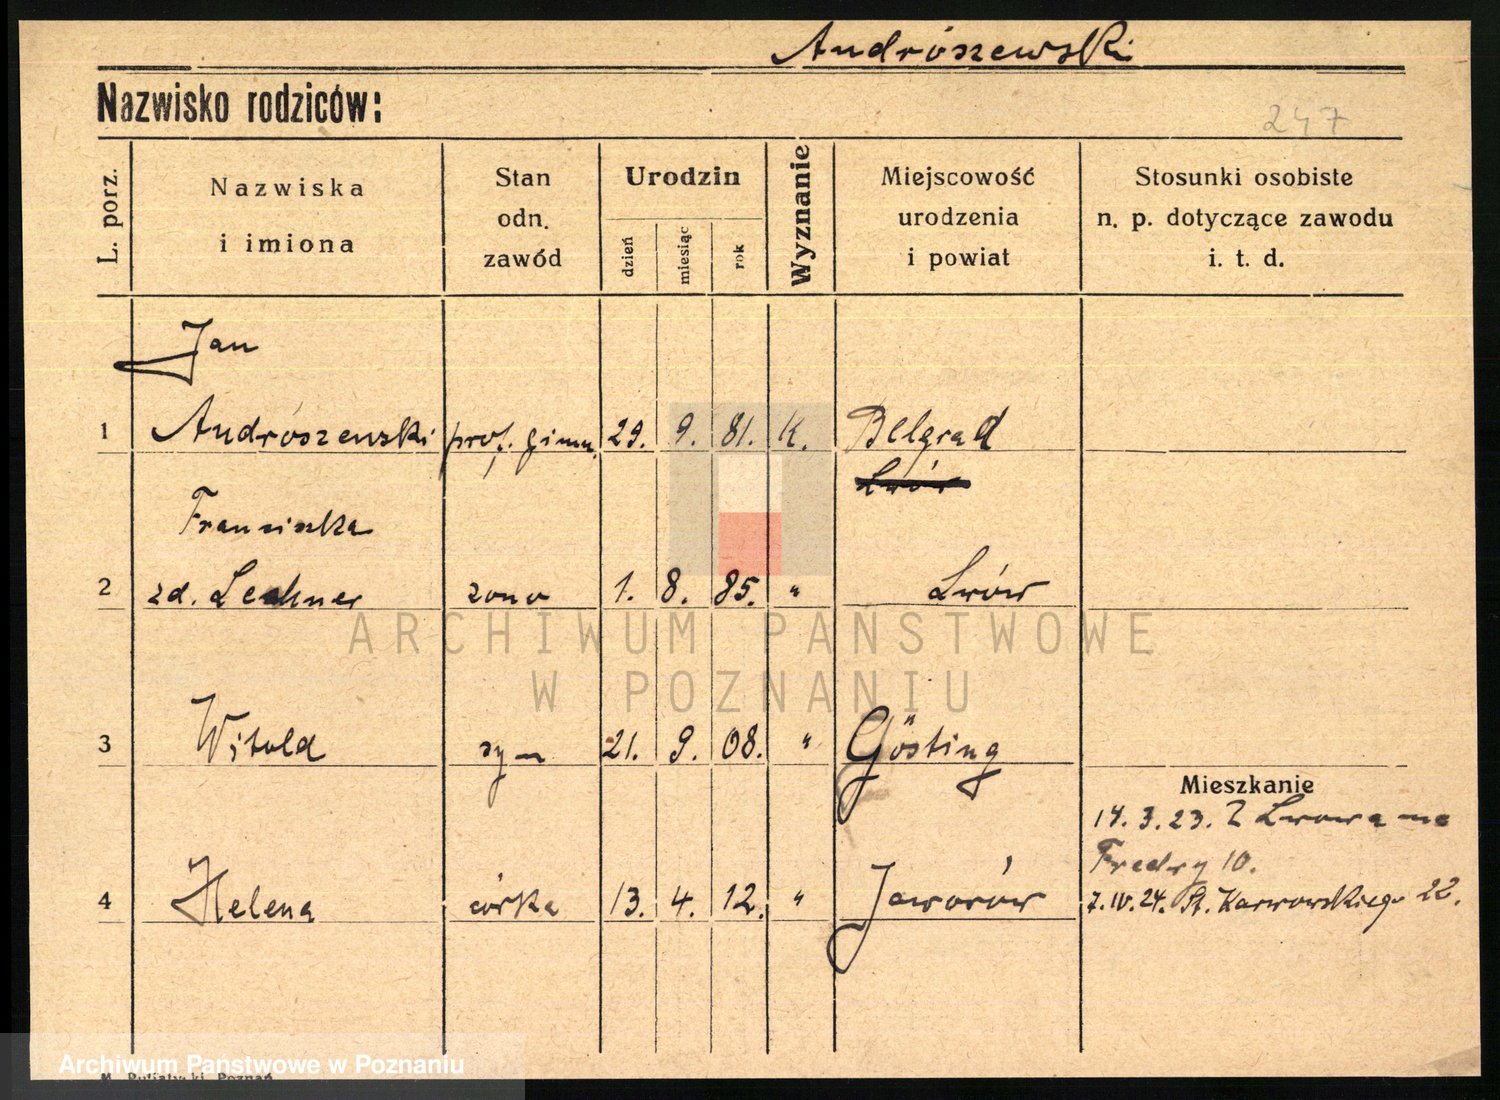 Andrószewski
Nazwisko rodziców:
247
L. porz.
Nazwiska
i imiona
Stan
odn.
zawód
Urodzin
dzień
miesiąc
rok
Wyznanie
Miejscowość
urodzenia
i powiat
Stosunki osobiste
n. p. dotyczące zawodu
i. t. d.
Jan
1 Andrószewski prof. gimn. 29. 9. 81. K. Belgrad
Lwów
Franciszka
2 zd. Lechner żona 1. 8. 85. " Lwów
ARCHIWUM PAŃSTWOWE
W POZNANIU
3 Witold syn 21. 9. 08. " Gösting
Mieszkanie
14. 3. 23. Z Lwowa na
Fredry 10.
4 Helena córka 13. 4. 12. " Jaworów 7. IV. 24. St. Karwowskiego 22.
Archiwum Państwowe w Poznaniu
Poznań